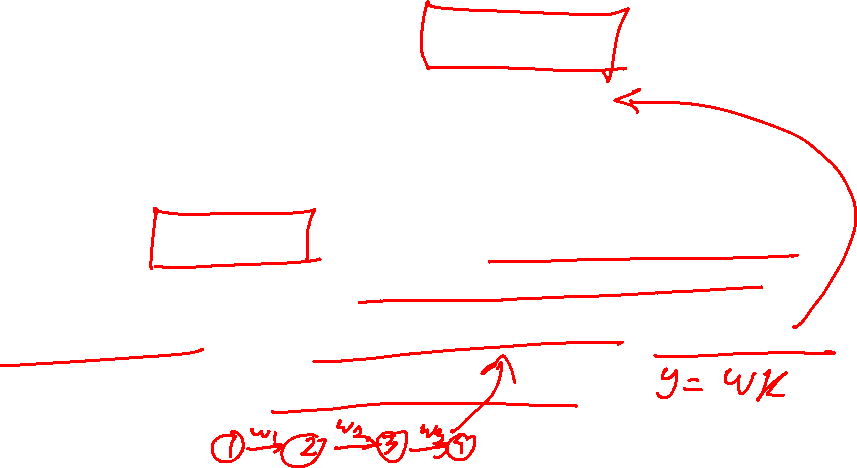 y = wx
1 w1 2 w2 3 w3 4